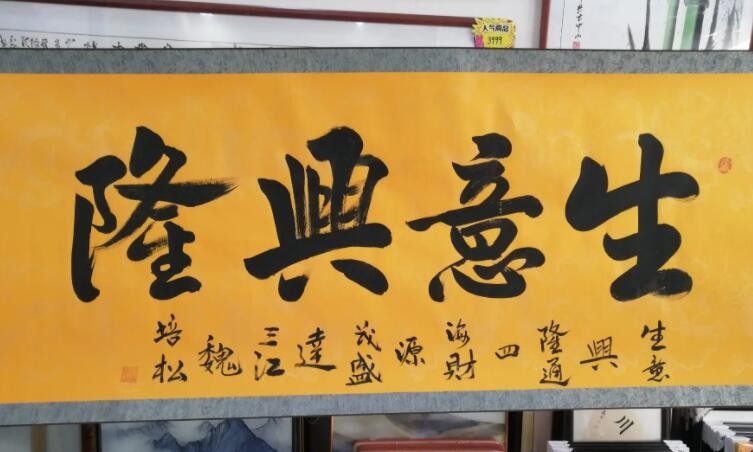 人气商品
3999
生意興隆
生意興隆通四海財源茂盛達三江魏培松